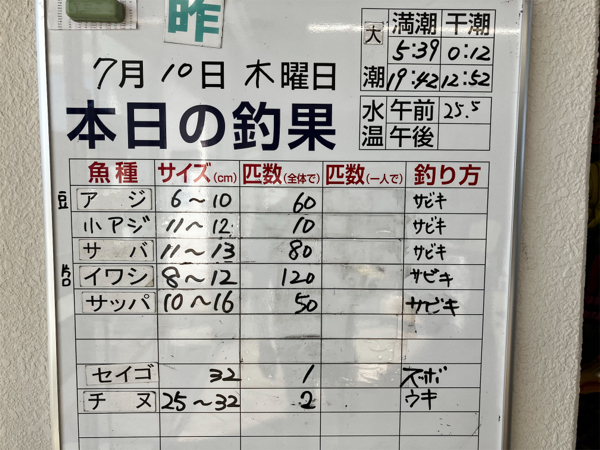 昨
7月10日 木曜日
本日の釣果
大潮 満潮 干潮
5:39 0:12
19:42 12:52
水温 午前 25.5
午後
魚種 サイズ(cm) 匹数(全体で) 匹数(一人で) 釣り方
豆 アジ 6~10 60 サビキ
小アジ 11~12 10 サビキ
サバ 11~13 80 サビキ
カタクチ イワシ 8~12 120 サビキ
サッパ 10~16 50 サビキ
セイゴ 32 1 ズボ
チヌ 25~32 2 ウキ